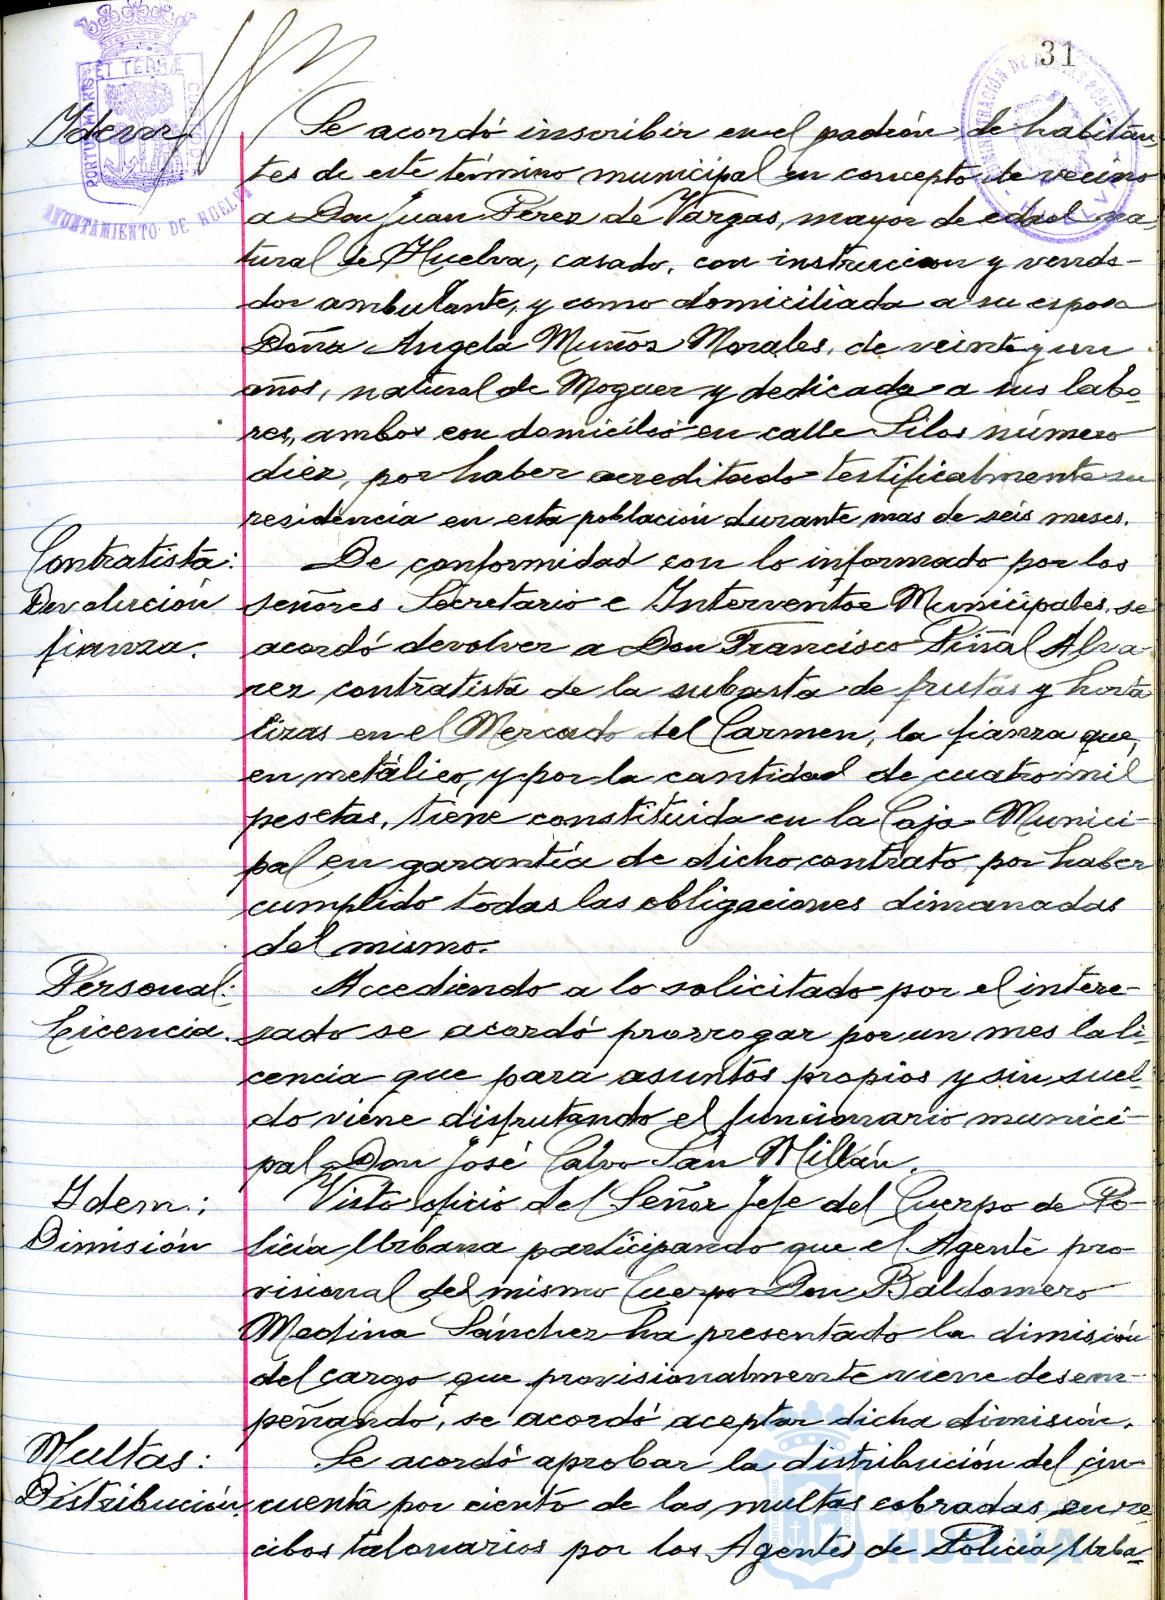 31
Ydem
Se acordó inscribir en el padrón de habitan-
tes de este término municipal en concepto de vecino
a Don Juan Pérez de Vargas, mayor de edad na-
tural de Huelva, casado, con instruccion y vende-
dor ambulante, y como domiciliada a su esposa
Doña Angela Muñoz Morales, de veinte y un
años, natural de Moguer y dedicada a sus labo-
res, ambos con domicilio en calle Silos número
diez, por haber acreditado testificalmente su
residencia en esta población durante mas de seis meses.
Contratista:
Devolución
fianza.
De conformidad con lo informado por los
señores Secretario e Interventor Municipales, se
acordó devolver a Don Francisco Piñal Alva-
rez contratista de la subasta de frutas y horta
lizas en el Mercado del Carmen, la fianza que,
en metálico, y por la cantidad de cuatro mil
pesetas, tiene constituida en la Caja Munici-
pal en garantía de dicho contrato por haber
cumplido todas las obligaciones dimanadas
del mismo.
Personal:
Licencia.
Accediendo a lo solicitado por el intere-
sado se acordó prorrogar por un mes la li-
cencia que para asuntos propios y sin suel-
do viene disfrutando el funcionario munici-
pal Don José Calvo San Millán.
Ydem:
Dimisión
Visto oficio del Señor Jefe del Cuerpo de Po-
licía Urbana participando que el Agente pro-
visional del mismo Cuerpo Don Baldomero
Medina Sánchez ha presentado la dimisión
del cargo que provisionalmente viene desem-
peñando, se acordó aceptar dicha dimisión.
Multas:
Distribución.
Se acordó aprobar la distribución del cin-
cuenta por ciento de las multas cobradas en re-
cibos talonarios por los Agentes de Policía Urba-
PORTUS MARIS ET TERRAE CUSTODIA
AYUNTAMIENTO DE HUELVA
HUELVA